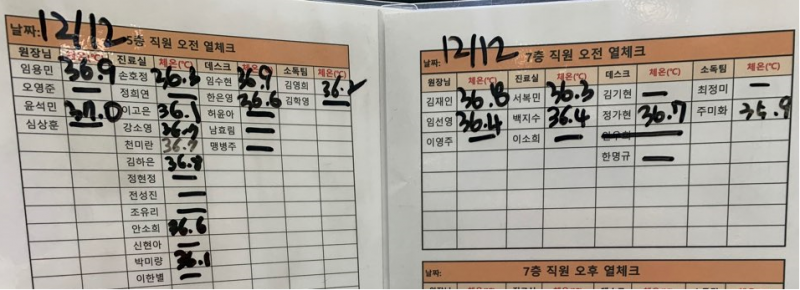 날짜: 12/12 5층 직원 오전 열체크
원장님 체온(℃) 진료실 체온(℃) 데스크 체온(℃) 소독팀 체온(℃)
임용민 36.9 손호정 36.3 임수현 36.9 김영희 36.2
오영준 — 정희연 — 한은영 36.6 김학영 —
윤석민 37.0 이고은 36.1 허윤아 —
심상훈 — 강소영 36.7 남효림 —
천미란 36.7 맹병주 —
김하은 36.8
정현정 —
전성진 —
조유리 —
안소희 36.6
신현아 —
박미랑 36.1
이한별 —
날짜: 12/12 7층 직원 오전 열체크
원장님 체온(℃) 진료실 체온(℃) 데스크 체온(℃) 소독팀 체온(℃)
김재인 36.8 서복민 36.3 김기현 — 최정미 —
임선영 36.4 백지수 36.4 정가현 36.7 주미화 35.9
이영주 — 이소희 —
한명규 —
날짜: 7층 직원 오후 열체크